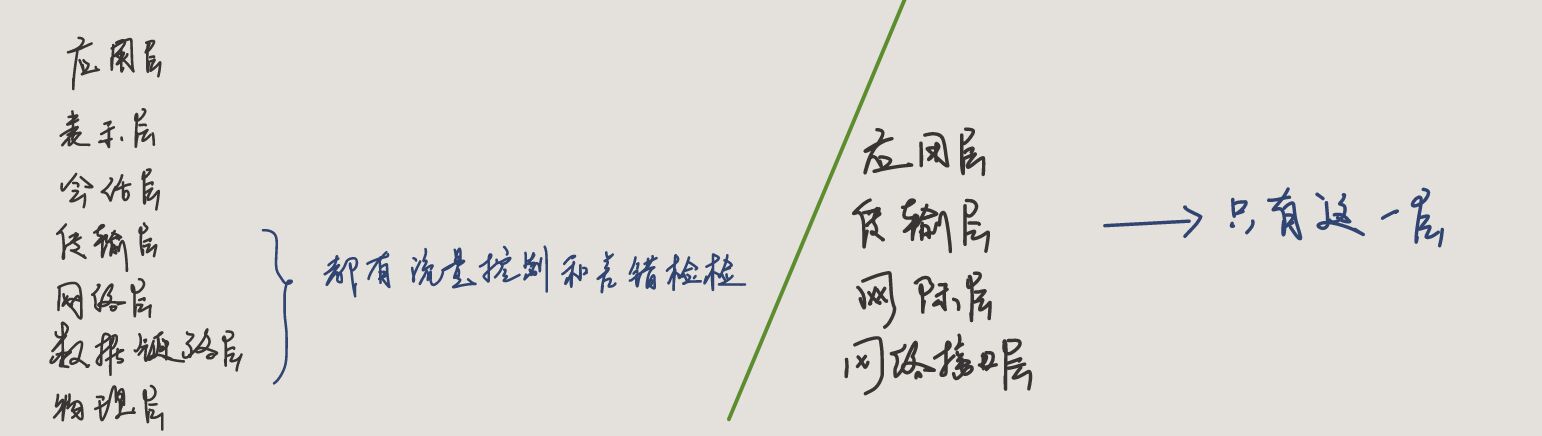 应用层
表示层
会话层
传输层
网络层
数据链路层
物理层
都有流量控制和差错检检
应用层
传输层
网际层
网络接口层
只有这一层